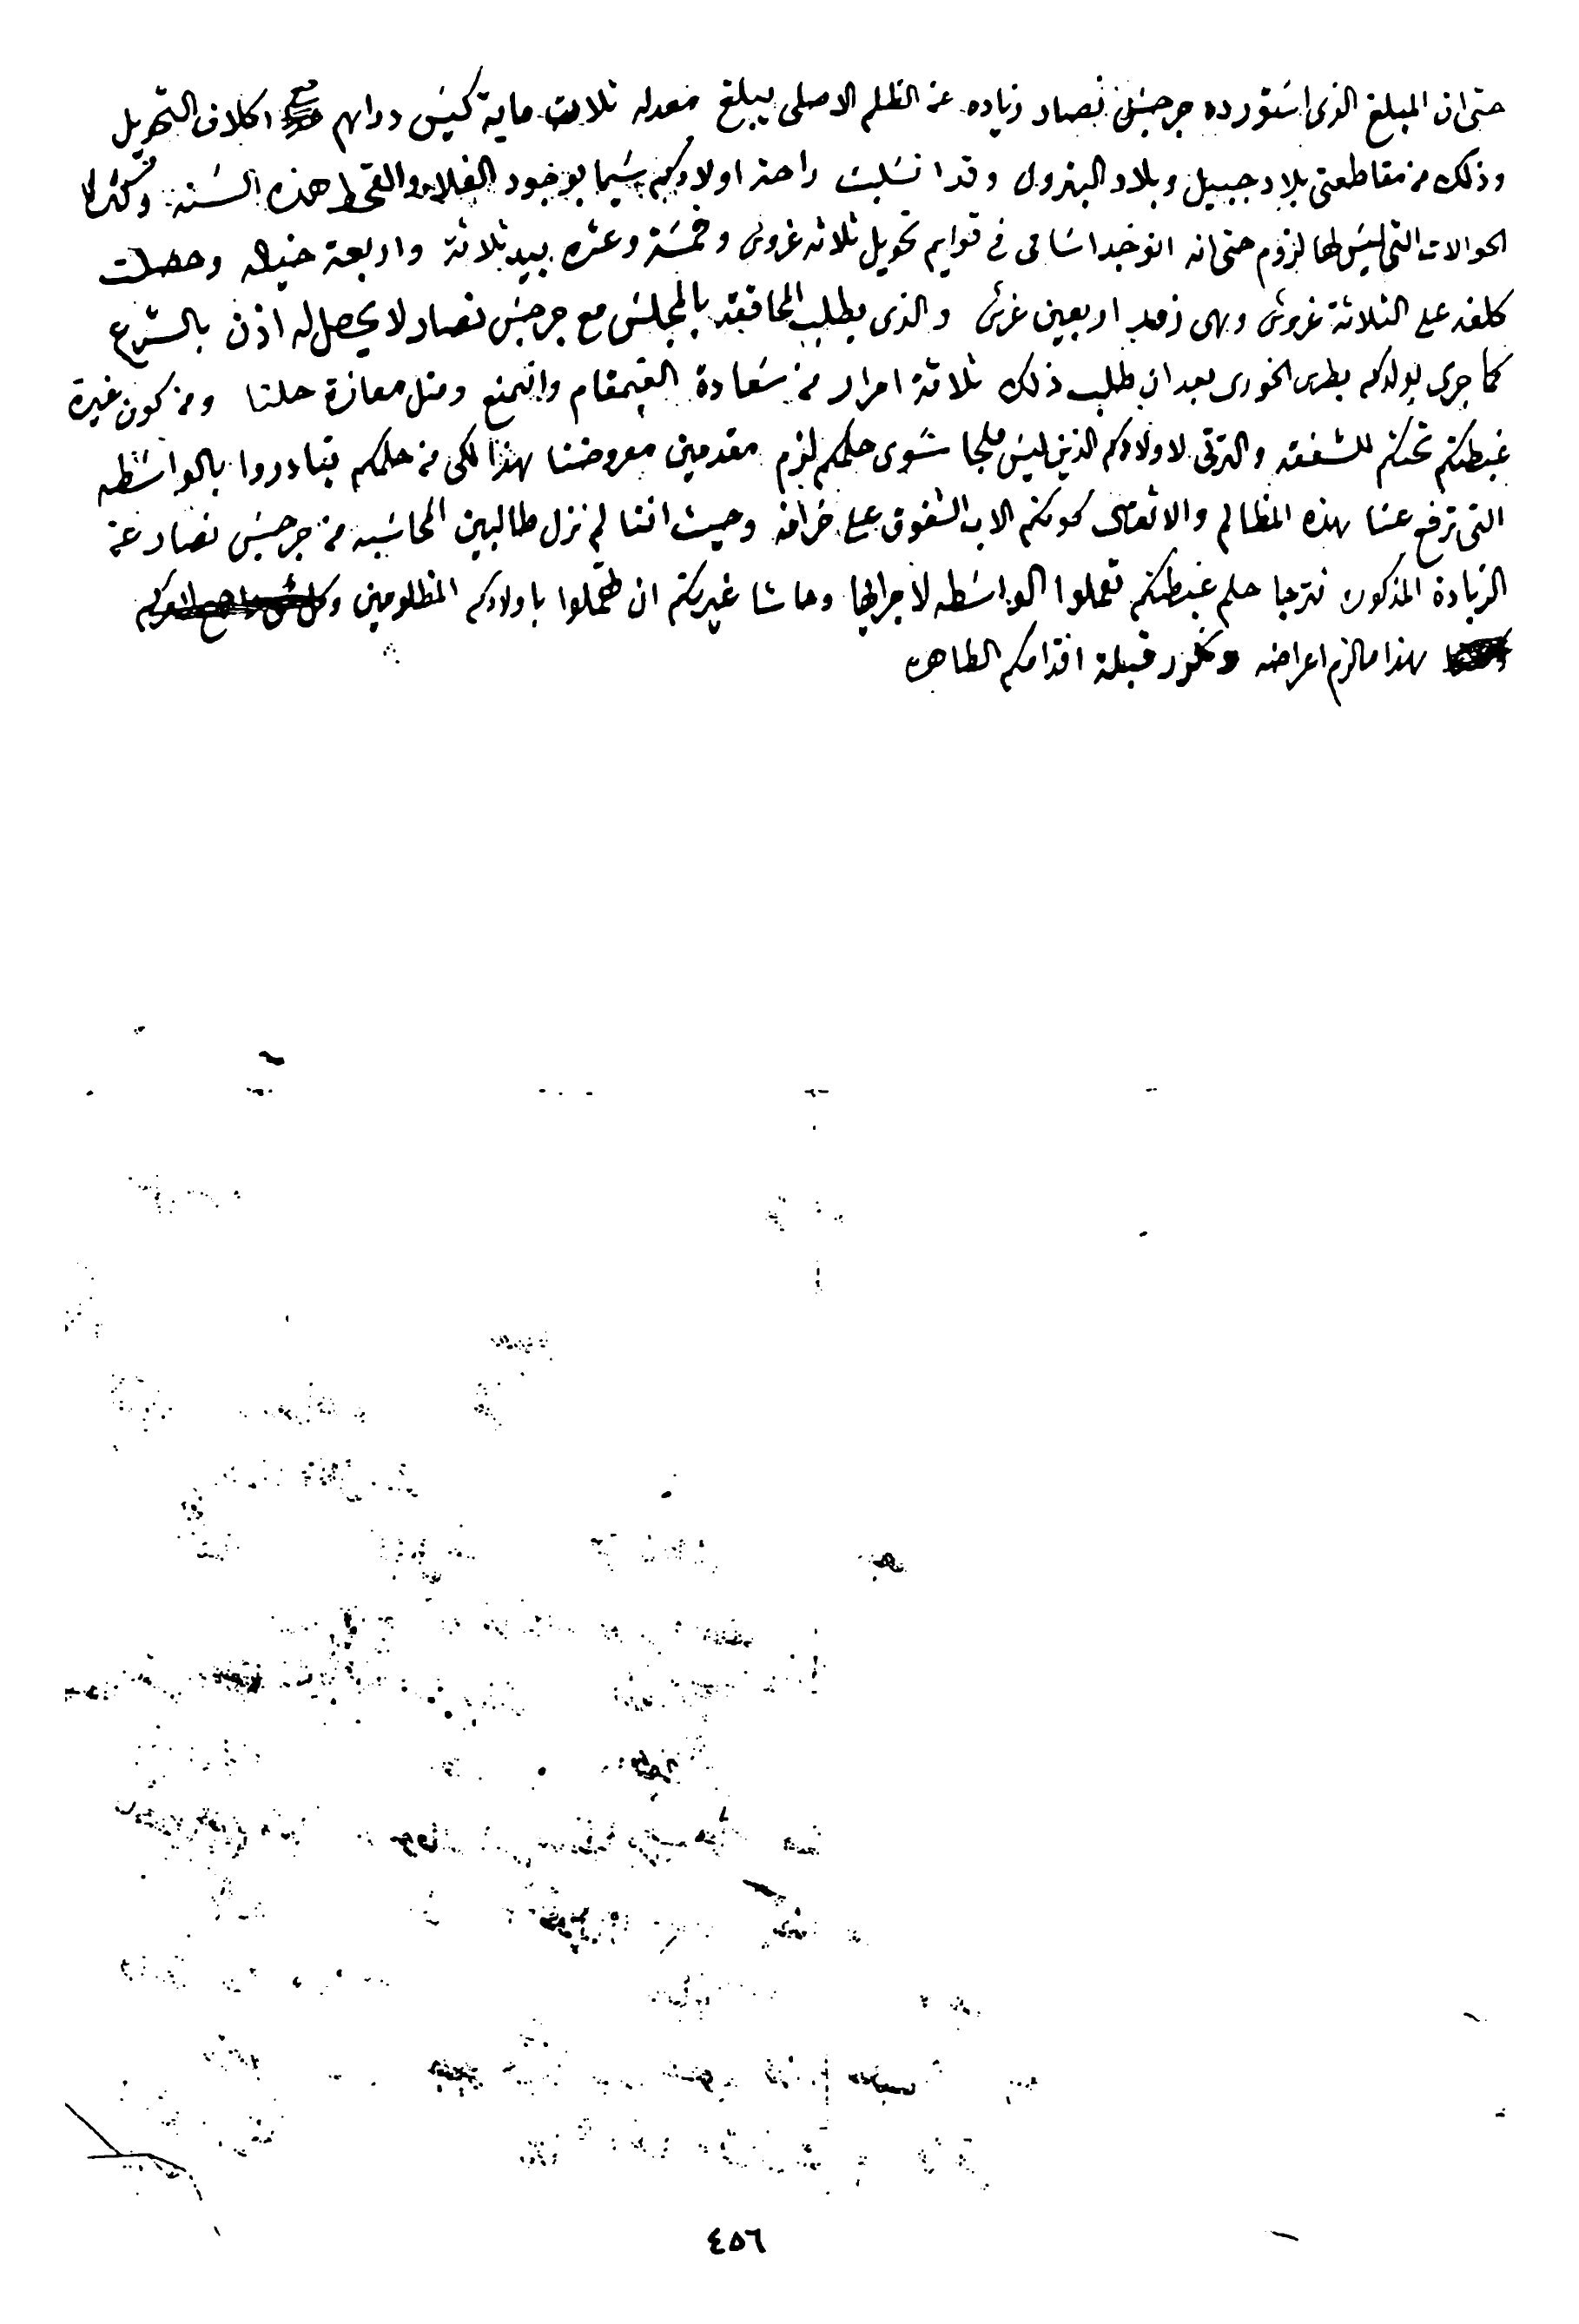 حتى ان المبلغ الذى استورده جرجس نصار زياده عن الظلم الاصلى يبلغ معدله ثلاث ماية كيس دراهم اكلاف التحويل
وذلك من مقاطعتى بلاد جبيل وبلاد البترون وقد انسلبت راحة اولادكم سيما بوجود الغلاء والقحط هذه السنه وكثرة
الحوالات التى ليس لها لزوم حتى انه انوجد اسامى فى قوايم تحويل ثلاثه غروش وخمسة وعشره بيد ثلاثة واربعة خياله وحصلت
كلفه على الثلاثة غروش وهى ذهاب اربعين غرش والذى يطلب المحاققه بالمجلس مع جرجس نصار لا يحصل له اذن بالشرع
كما جرى لولدكم بطرس الخورى بعد ان طلب ذلك ثلاثة امرار من سعادة القيمقام وانمنع ومثل معازة حلنا ومن كون غيرة
غبطتكم تحتكم للشفقه والترقى لاولادكم الذين ليس ملجا سوى حلمكم لزم مقدمين معروضنا بهذا لكى من حلمكم تبادروا بالواسطه
التى ترفع عنا هذه المظالم والاتعاب كونكم الاب الشفوق على خرافه وحيث اننا لم نزل طالبين المحاسبه من جرجس نصار عن
الزيادة المذكوره نترجا حلم غبطتكم تعملوا الواسطه لاجرائها وحاشا غيرتكم ان تهملوا باولادكم المظلومين
هذا ما لزم اعراضه ونكرر قبلة اقدامكم الطاهره
٤٥٦